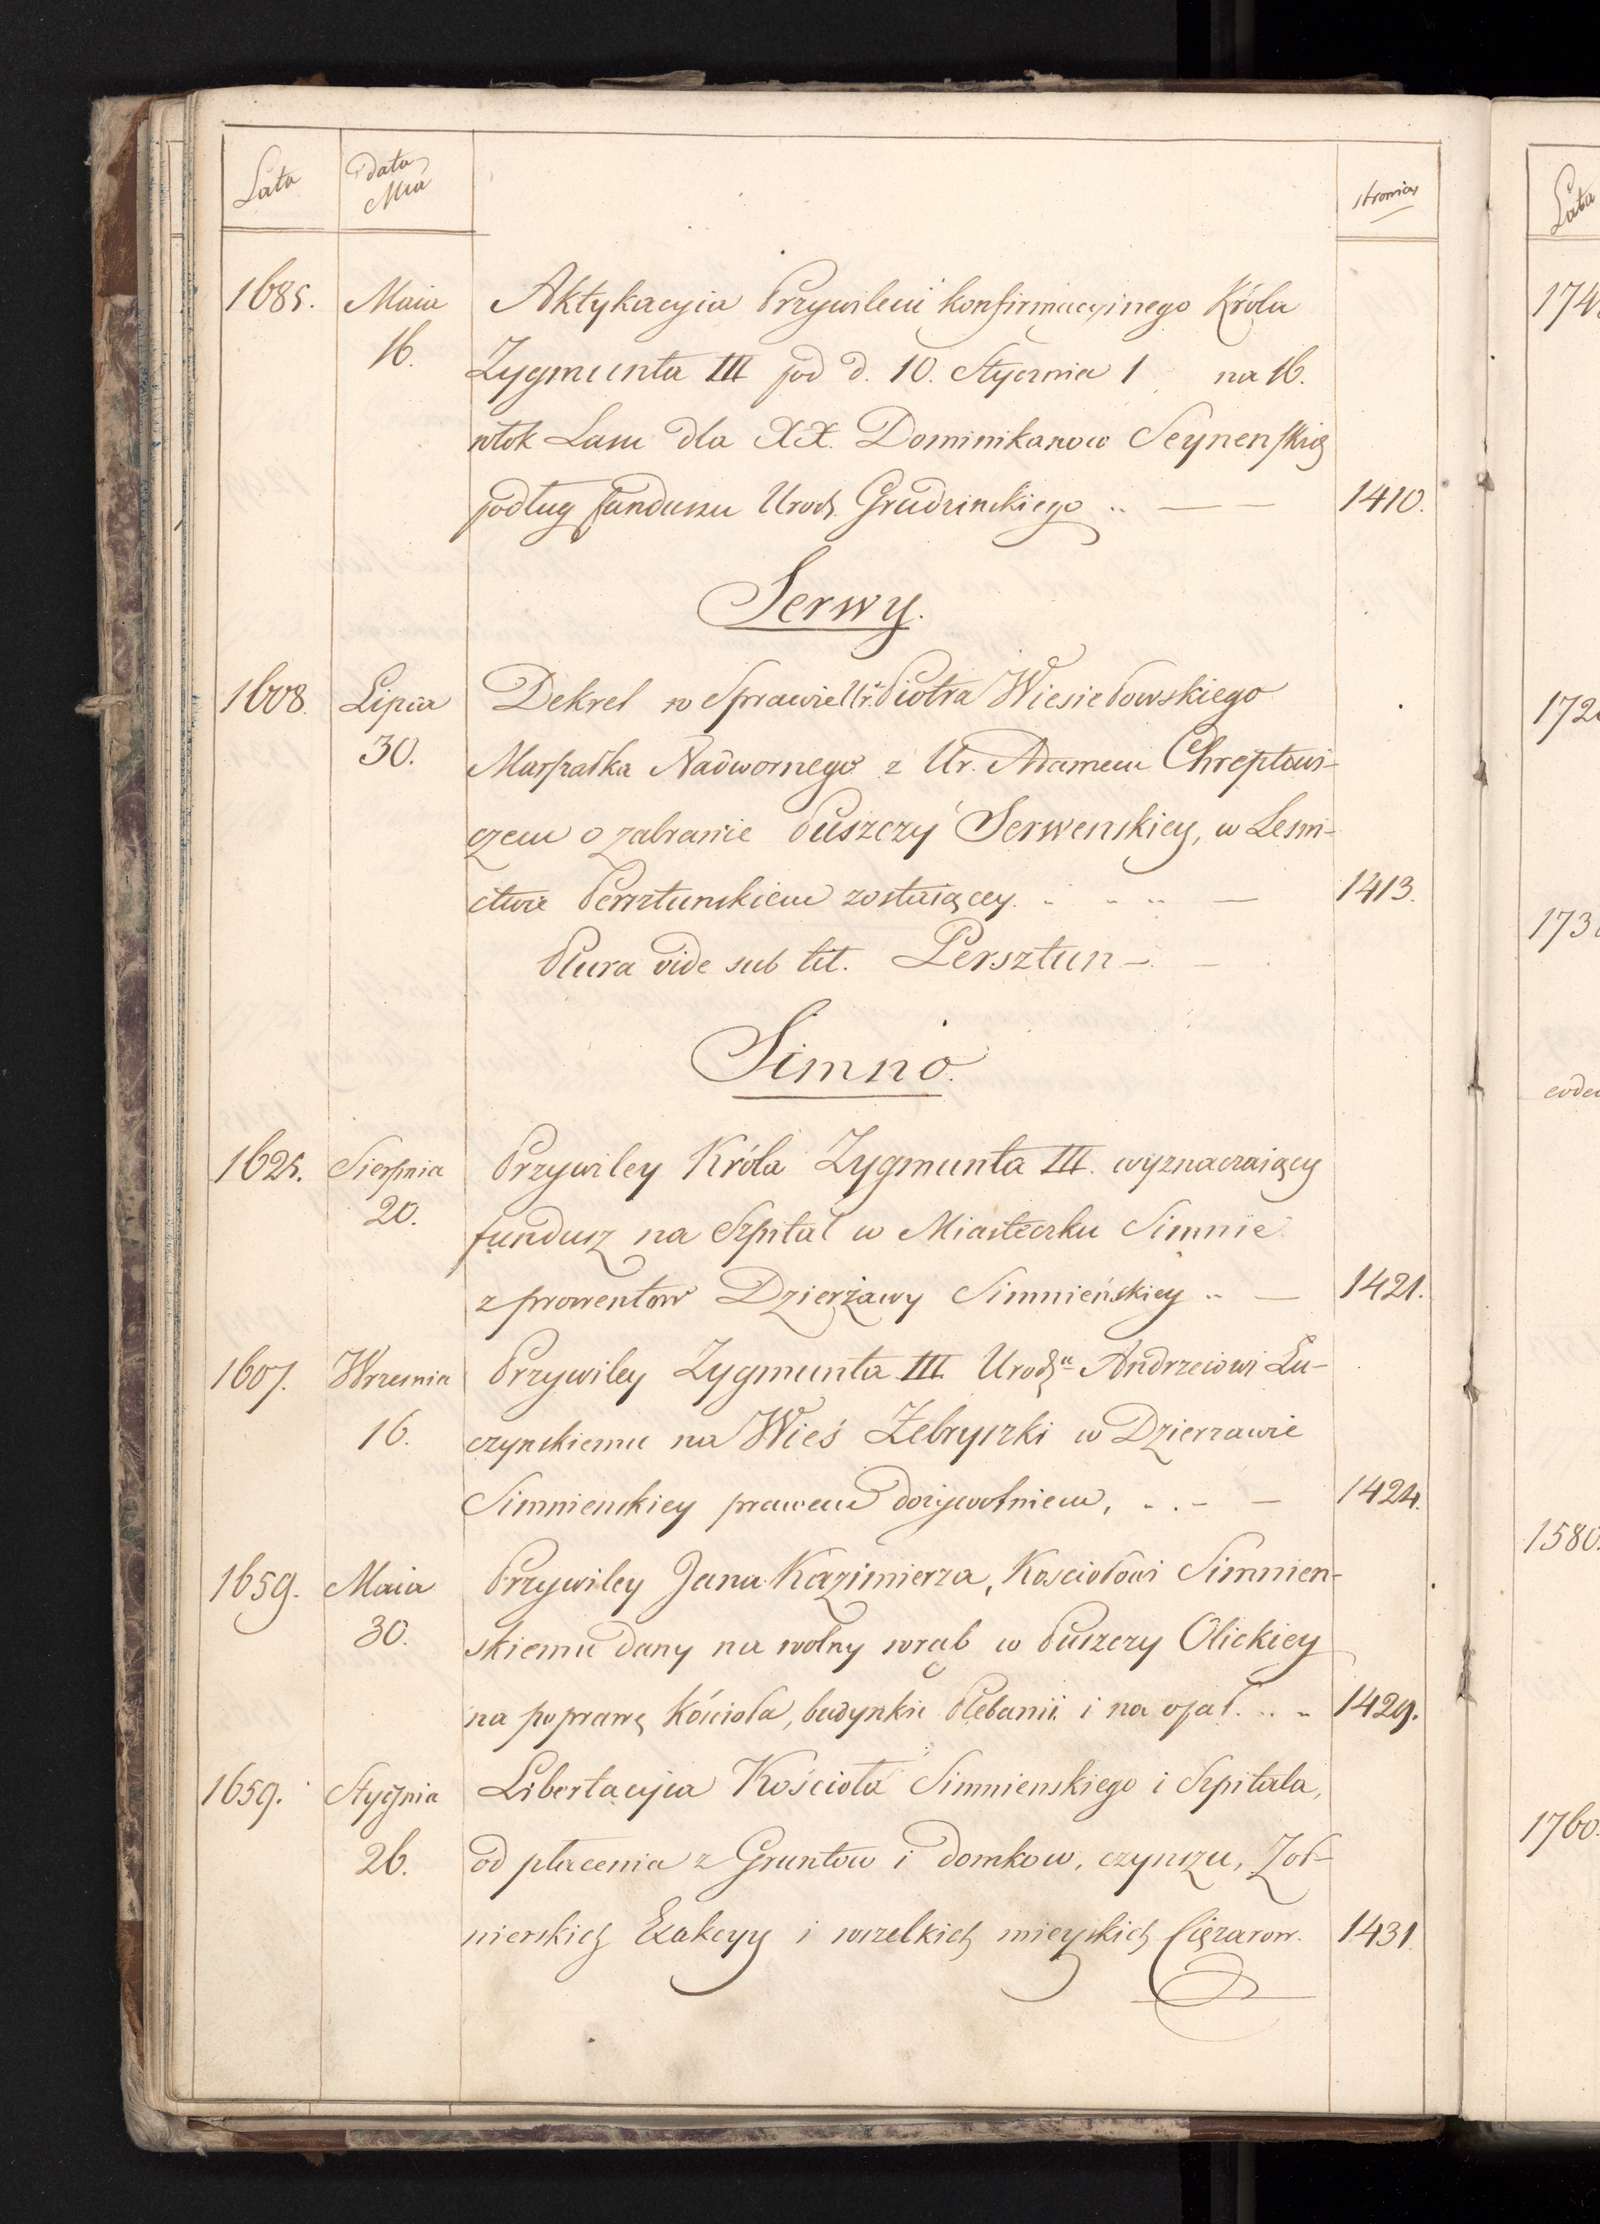 Lata
Data
Mca
stronica
1685. Maia Aktykacyia Przywileiu konfirmacyinego Króla
16. Zygmunta III pod d. 10. Stycznia 1 na 16.
włok Lasu dla XX. Dominikanow Seynenskich
podług funduszu Urodz. Grudzinskiego .. — — 1410.
Serwy.
1608. Lipca Dekret w Sprawie Ur. Piotra Wiesiołowskiego
30. Marszałka Nadwornego z Ur. Adamem Chreptowi-
czem o zabranie Puszczy Serwenskiey, w Lesni-
ctwie Persztunskiem zostaiącey. — 1413.
Plura vide sub tit. Persztun — —
Simno.
1625. Sierpnia Przywiley Króla Zygmunta III. wyznaczaiący
20. fundusz na Szpital w Miasteczku Simnie
z prowentow Dzierżawy Simnieńskiey .. — 1421.
1607. Wrzesnia Przywiley Zygmunta III Urodz. Andrzeiowi Lu-
16. czynskiemu na Wieś Zebryszki w Dzierzawie
Simnienskiey prawem dożywotniem, - . - — 1424.
1659. Maia Przywiley Jana Kazimierza, Kosciołowi Simnien-
30. skiemu dany na wolny wrąb w Puszczy Olickiey
na poprawę Kościoła, budynkie Plebanii i na opał. .. - 1429.
1659. Stycznia Libertacyia Kościoła Simnienskiego i Szpitala,
26. od płacenia z Gruntow i domkow, czynszu, Żoł-
nierskich Exakcyy i wszelkich mieyskich Cięzarow. 1431.
Lata
174
172
173
eode
1580.
1760.